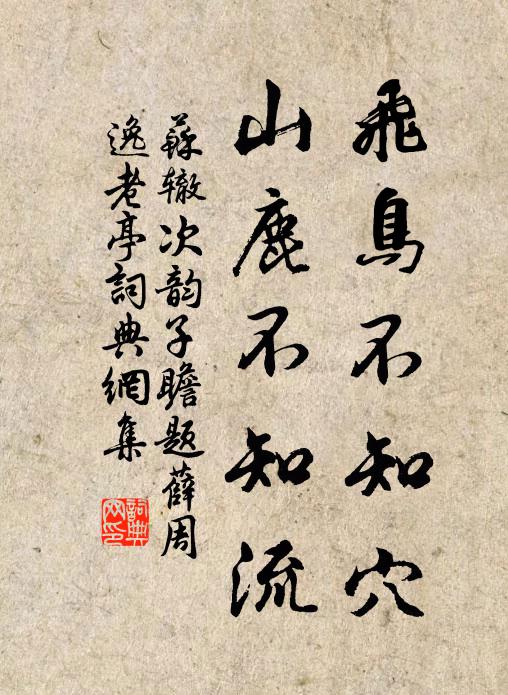 飛鳥不知穴
山鹿不知流
蘇辙次韵子瞻题薛周
逸老亭詞典網集
詞典
网印